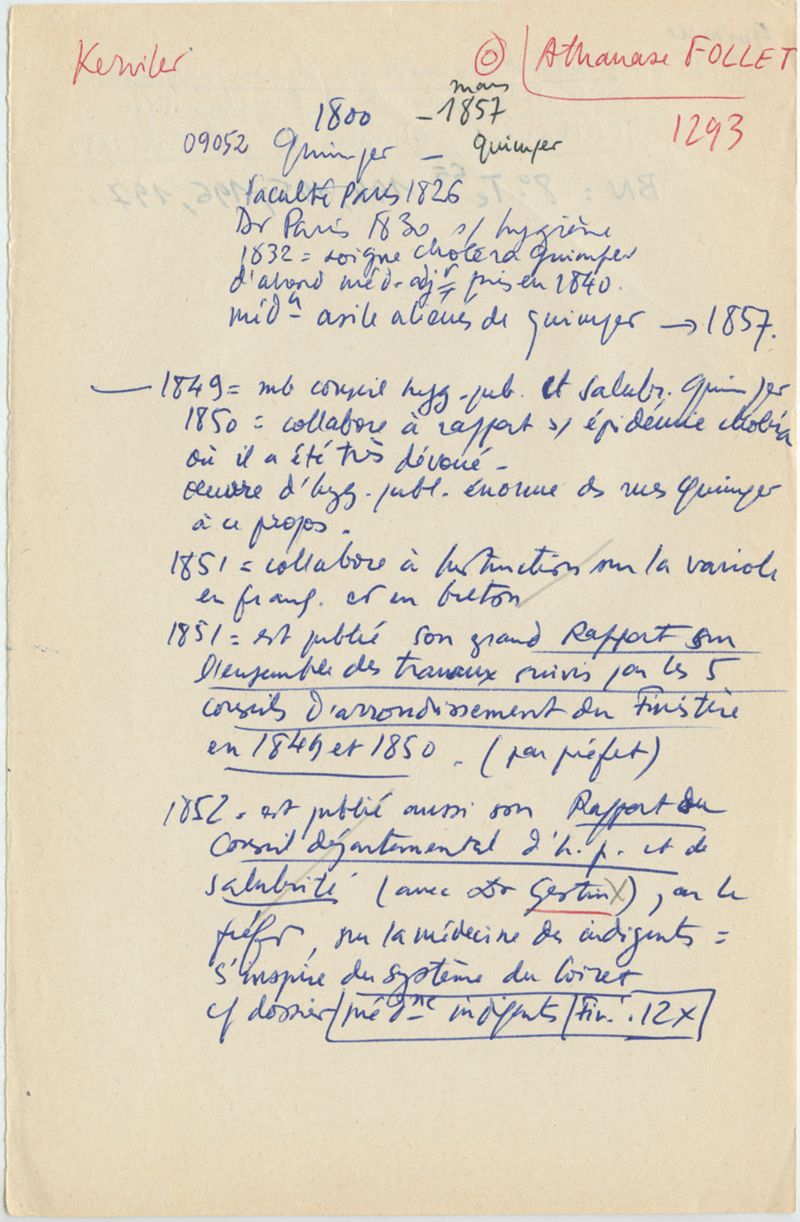 Kerviler
O Athanase FOLLET
1293
1800 — mars 1857
09052 Quimper — Quimper
Faculté Paris 1826
Dr Paris 1830 s/ hygiène
1832 = soigne choléra Quimper
d'abord méd-adjt puis en 1840.
méd asile aliénés de Quimper → 1857.
— 1849 = mb conseil hyg. pub. et salubr. Quimper
1850 = collabore à rapport s/ épidémie choléra
où il a été très dévoué -
œuvre d'hyg. publ. énorme des rues Quimper
à ce propos.
1851 = collabore à Instruction sur la variole
en franç. et en breton
1851 = est publié son grand Rapport sur
l'ensemble des travaux suivis par les 5
conseils d'arrondissement du Finistère
en 1849 et 1850. (par préfet)
1852 = est publié aussi son Rapport du
Conseil départemental d'h. p. et de
salubrité (avec Dr Gestin X), par le
préfet, sur la médecine des indigents =
s'inspire du système du Loiret
cf dossier méd ne indigents Fin. 12 X
BN : 8° Te 196, 197.